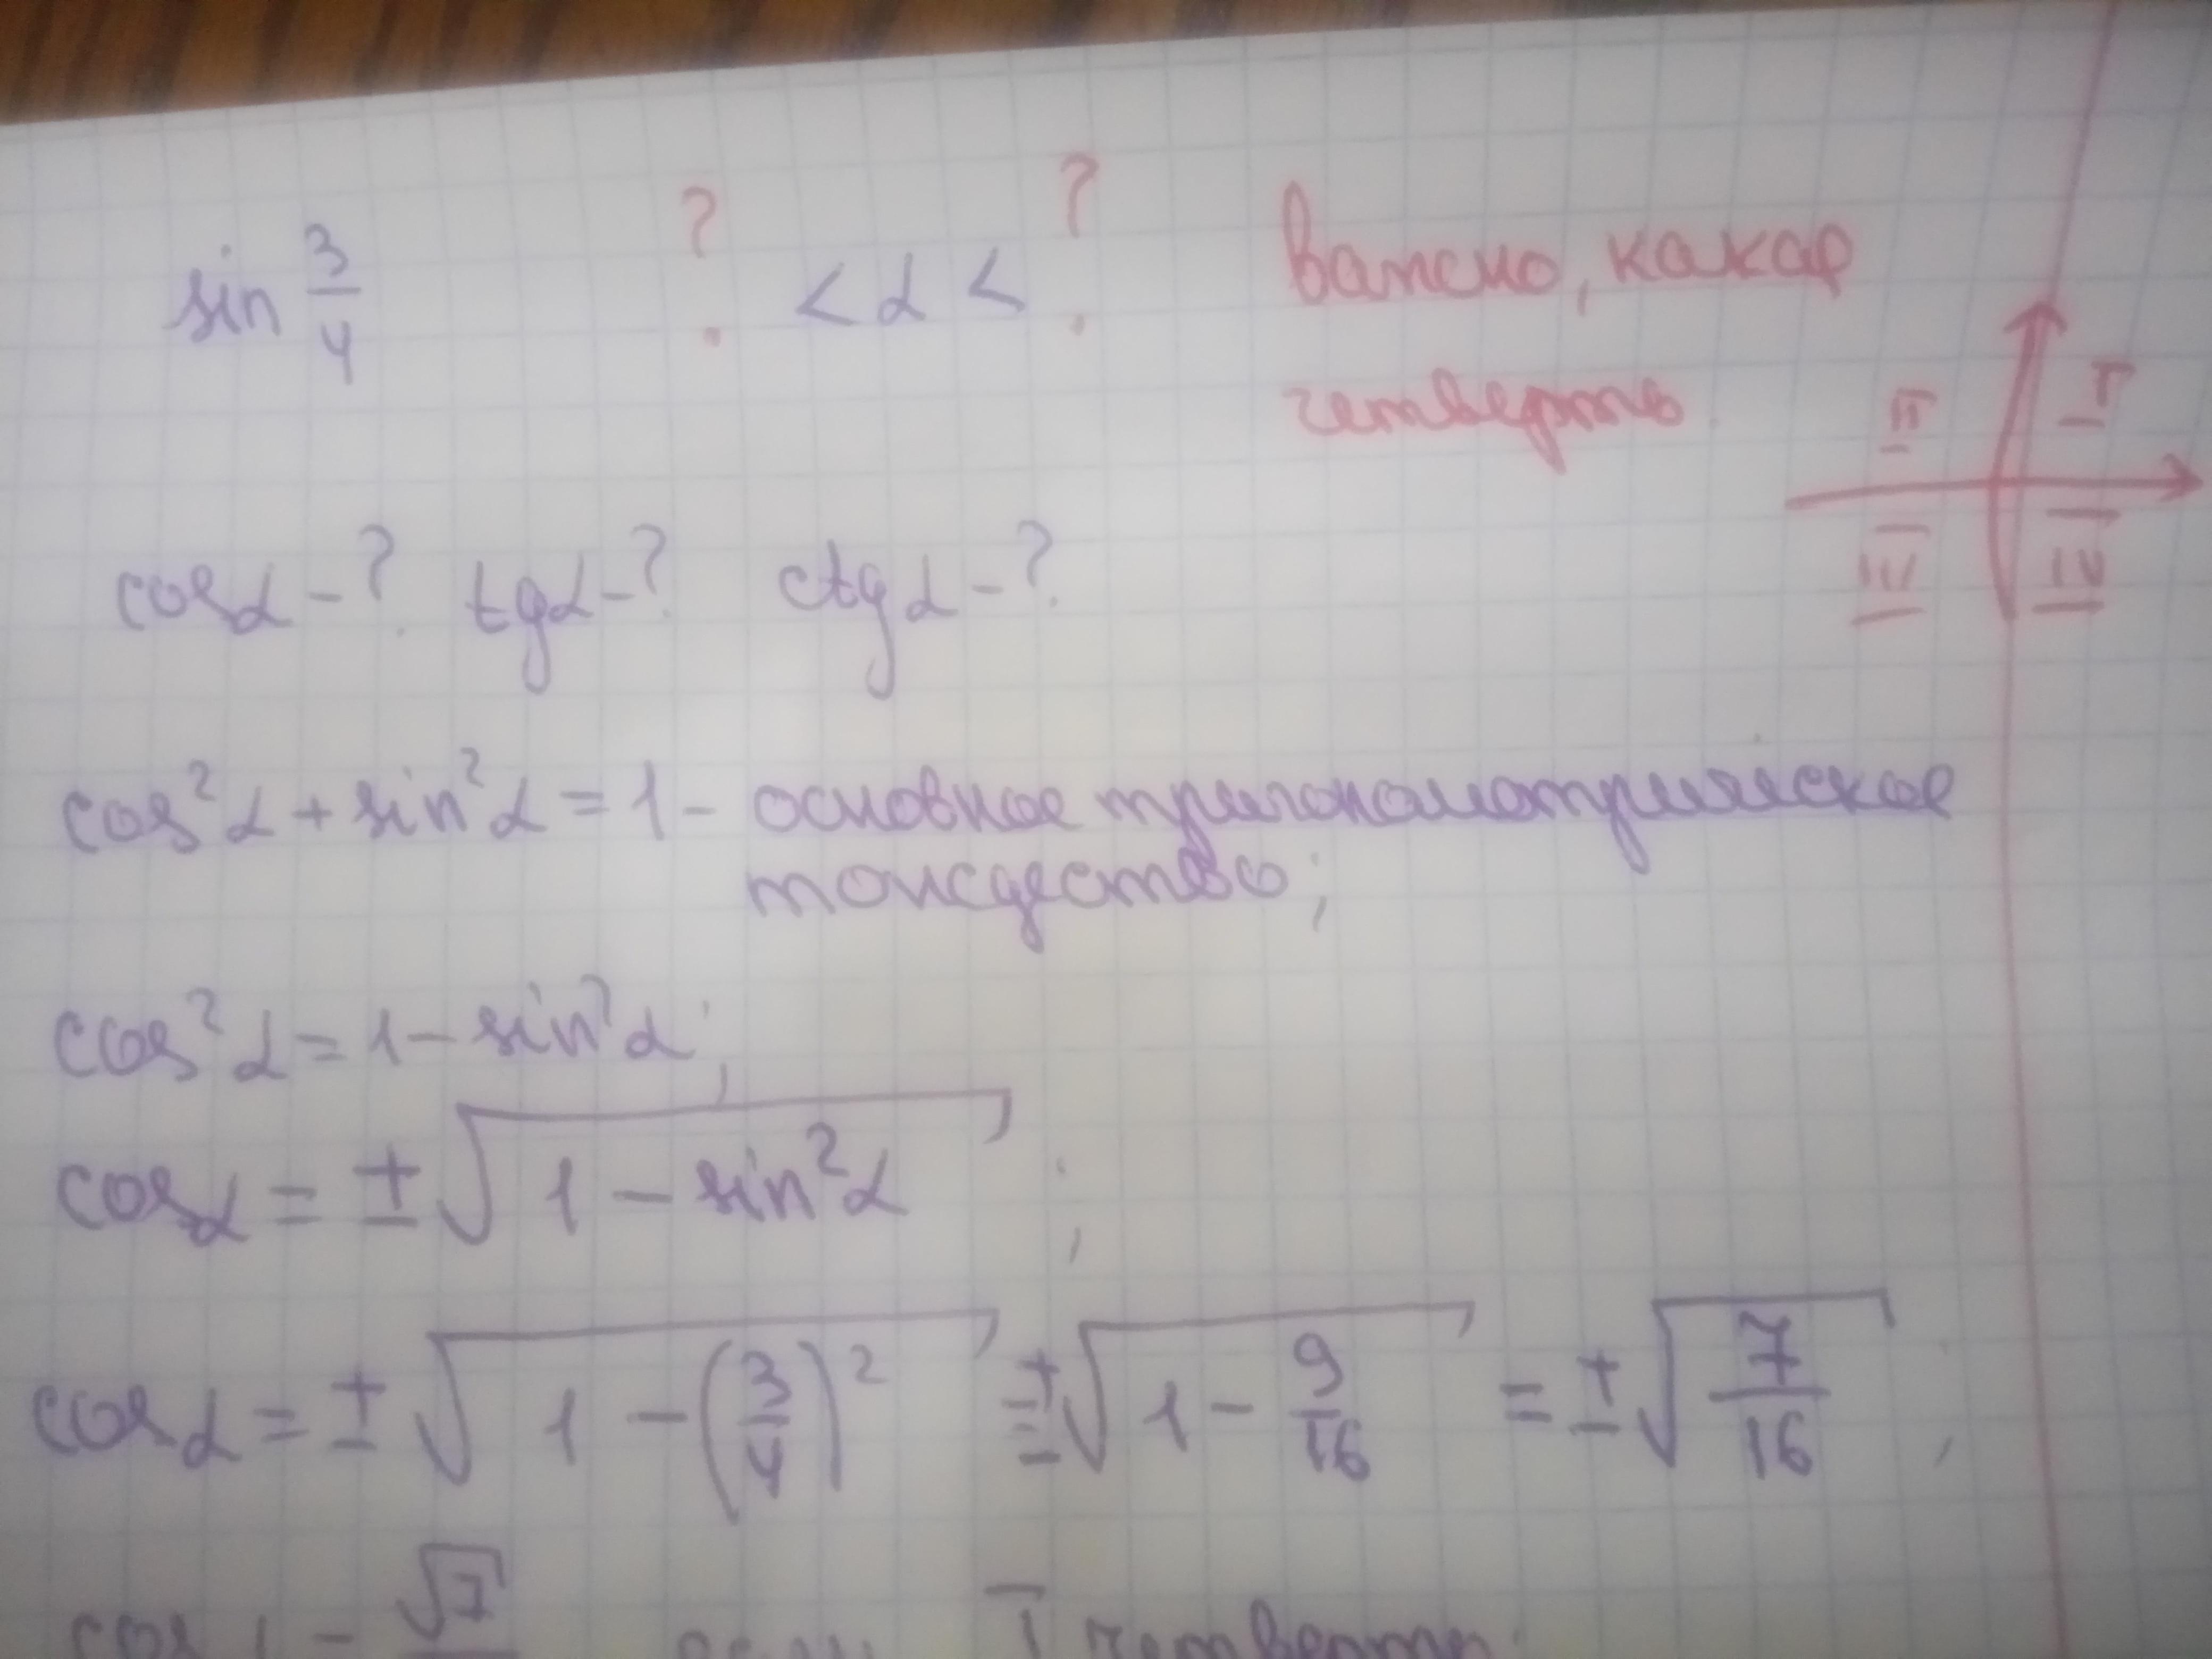 sin 3/4 ? < α < ? важно, какая
четверть
II I
III IV
cosα - ? tgα - ? ctgα - ?
cos²α + sin²α = 1 - основное тригонометрическое
тождество;
cos²α = 1 - sin²α;
cosα = ± √(1 - sin²α);
cosα = ± √(1 - (3/4)²) = ± √(1 - 9/16) = ± √(7/16);
cosα = √7 если I четверть;